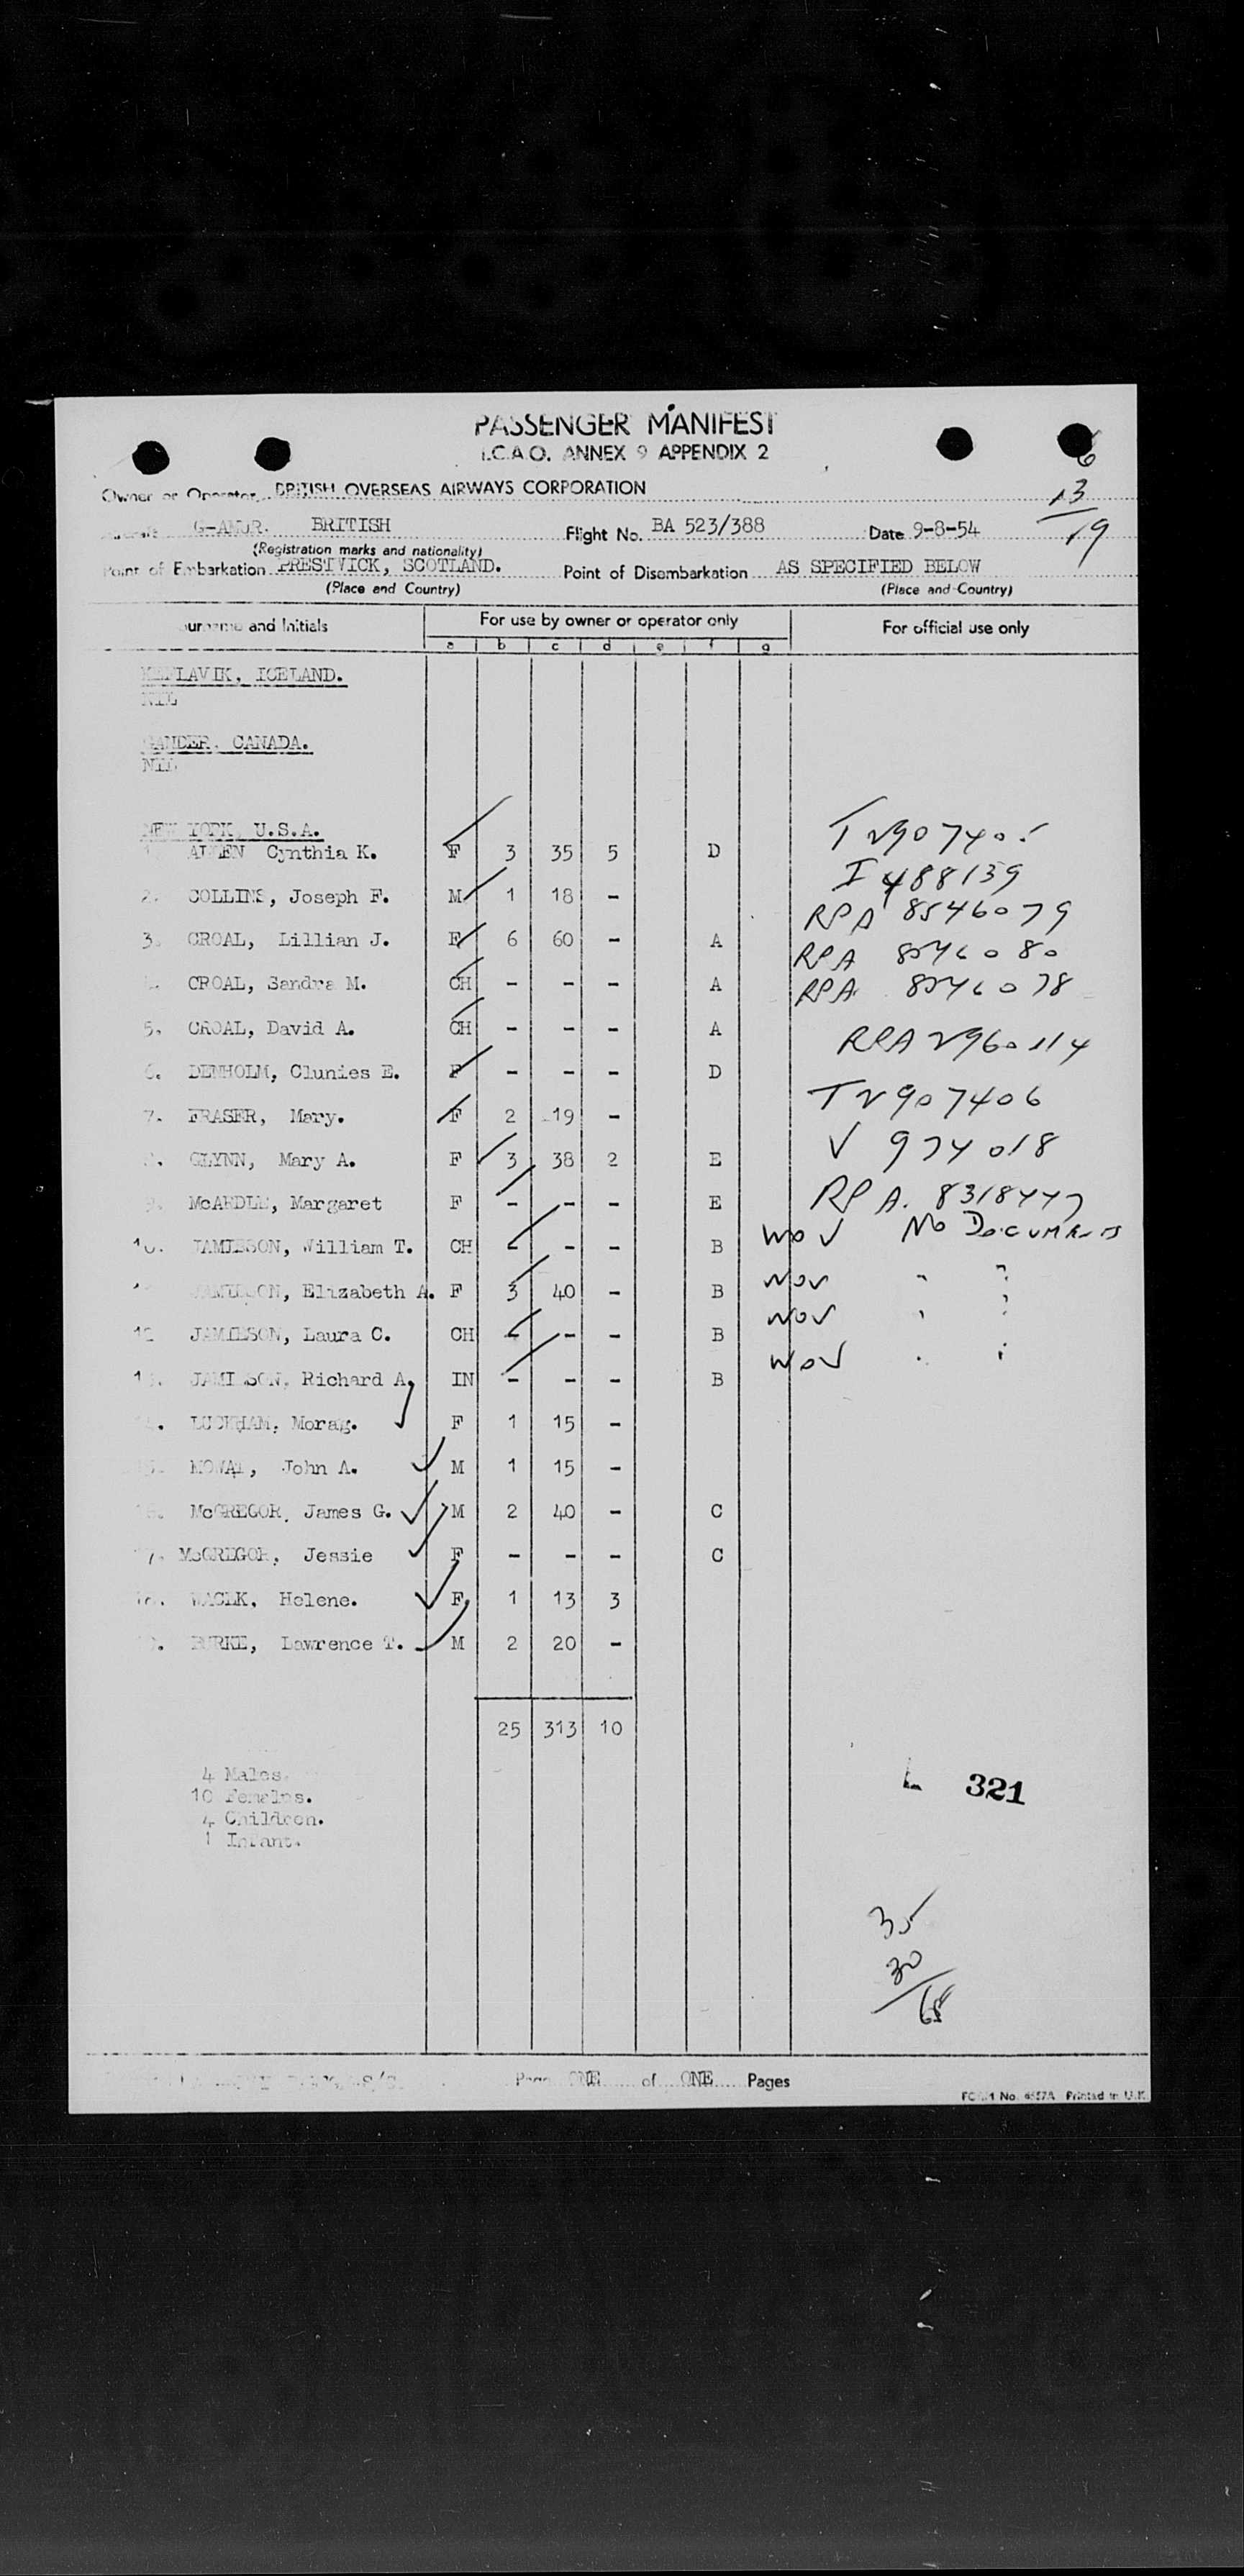 PASSENGER MANIFEST
I.C.A.O. ANNEX 9 APPENDIX 2
6
13
19
Owner or Operator BRITISH OVERSEAS AIRWAYS CORPORATION
BRITISH Flight No. BA 523/388 Date 9-8-54
(Registration marks and nationality)
Point of Embarkation PRESTWICK, SCOTLAND. Point of Disembarkation AS SPECIFIED BELOW
(Place and Country) (Place and Country)
Surname and Initials For use by owner or operator only For official use only
a b c d e f g
KEFLAVIK, ICELAND.
NIL
GANDER, CANADA.
NIL
NEW YORK, U.S.A.
Cynthia K. F 3 35 5 D
2. COLLINS, Joseph F. M 1 18 - I 488139
3. CROAL, Lillian J. F 6 60 - A RPA 8546079
CROAL, Sandra M. CH - - - A RPA 8546080
5. CROAL, David A. CH - - - A RPA 8546078
6. DENHOLM, Clunies E. F - - - D
7. FRASER, Mary. F 2 19 - T2907406
GLYNN, Mary A. F 3 38 2 E V 974018
McARDLE, Margaret F - - - E RPA.
10. JAMIESON, William T. CH - - - B WOV No Documents
JAMIESON, Elizabeth A. F 3 40 - B WOV " "
12 JAMIESON, Laura C. CH - - - B WOV " "
13. JAMIESON, Richard A. IN - - - B WOV " "
Morag. F 1 15 -
John A. M 1 15 -
McGREGOR, James G. M 2 40 - C
17. McGREGOR, Jessie F - - - C
18. Helene. F 1 13 3
BURKE, Lawrence T. M 2 20 -
25 313 10
4 Males.
10 Females.
4 Children.
1 Infant.
L 321
35
30
Page ONE of ONE Pages
FORM No. Printed in U.K.